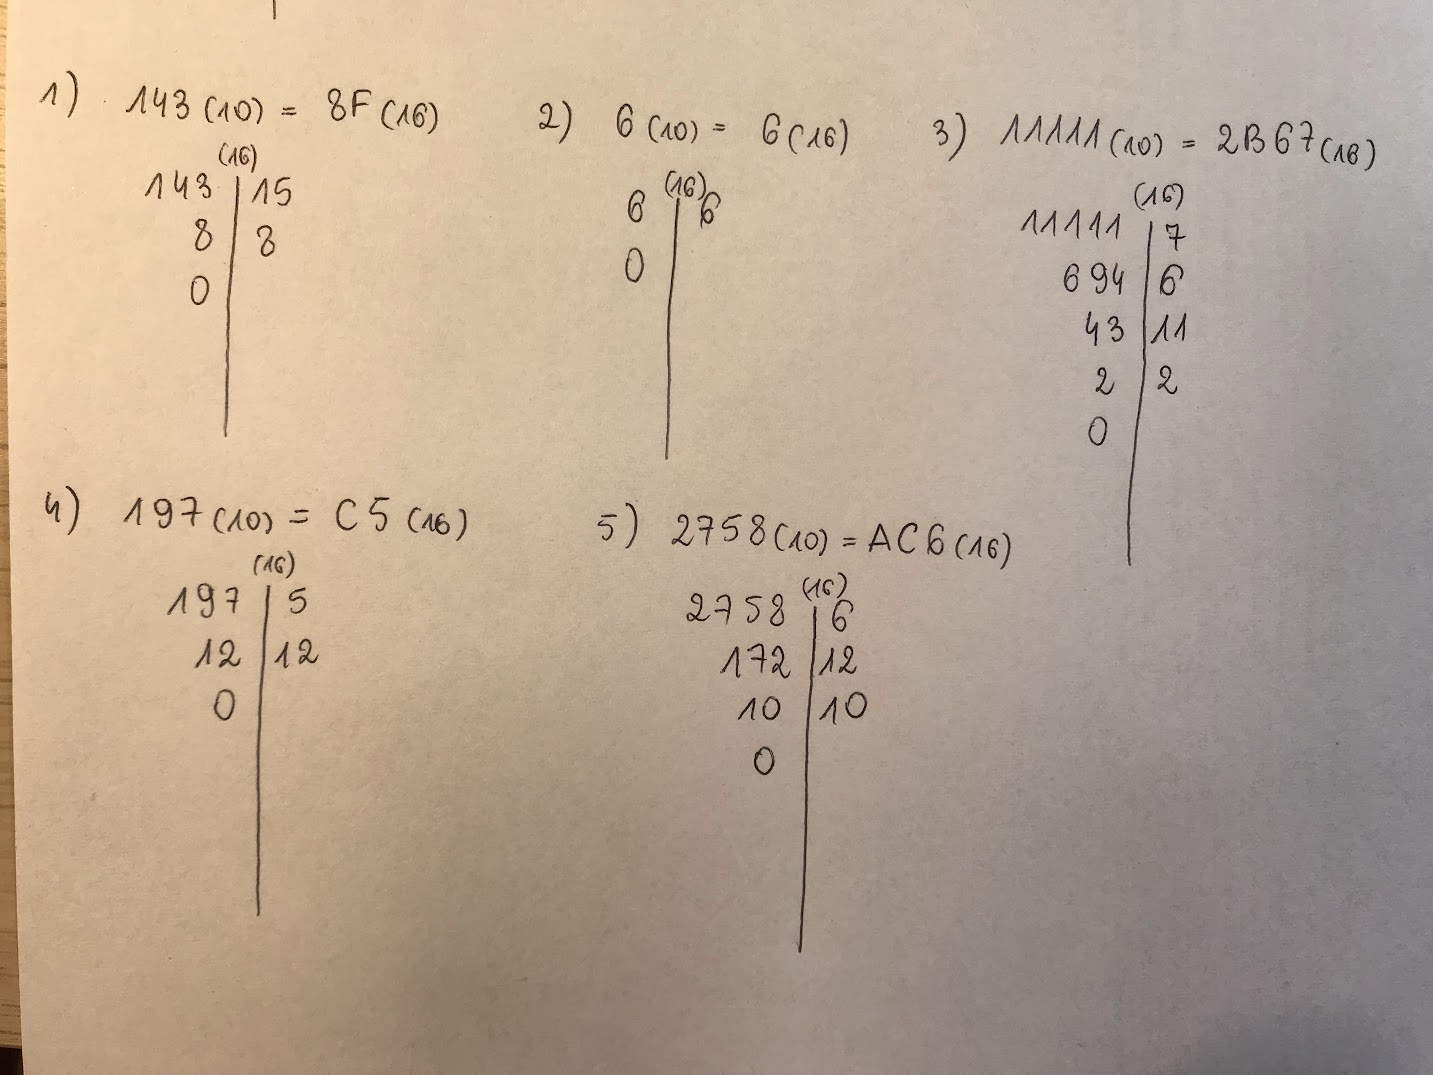 1) 143 (10) = 8F (16)
(16)
143 | 15
8 | 8
0
2) 6 (10) = 6 (16)
(16)
6 | 6
0
3) 11111 (10) = 2B67 (16)
(16)
11111 | 7
694 | 6
43 | 11
2 | 2
0
4) 197 (10) = C5 (16)
(16)
197 | 5
12 | 12
0
5) 2758 (10) = AC6 (16)
(16)
2758 | 6
172 | 12
10 | 10
0